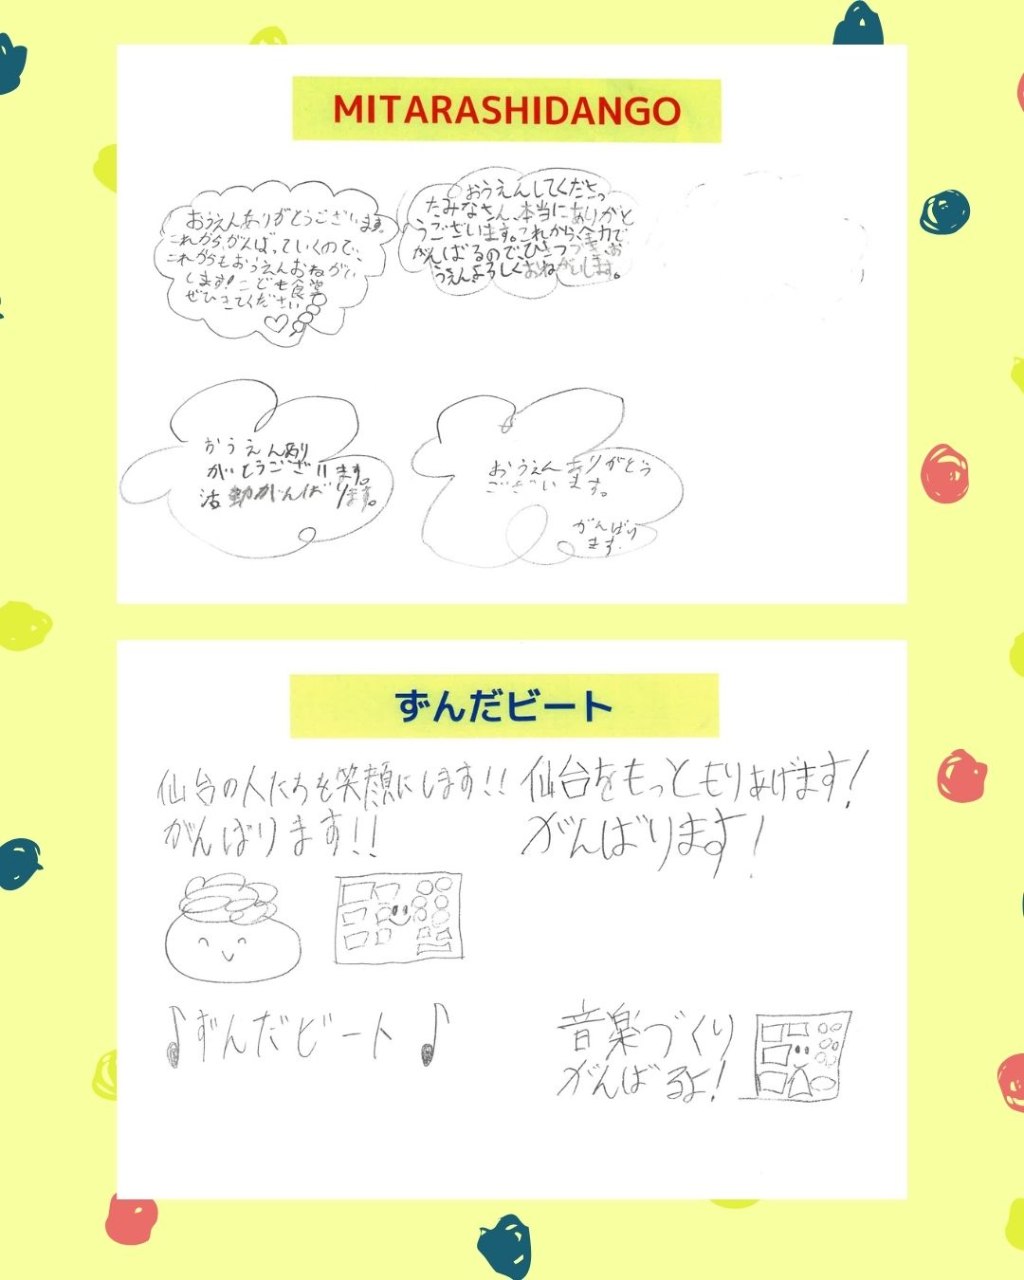 MITARASHIDANGO
おうえんありがとうございます。
これからがんばっていくので、
これからもおうえんおねがい
します!こども食堂
ぜひきてください
おうえんしてくださっ
たみなさん、本当にありがと
うございます。これから、全力で
がんばるので、ひきつづき、お
うえんよろしくおねがいします。
おうえんあり
がとうございます。
活動がんばります。
おうえんありがとう
ございます。
がんばり
ます。
ずんだビート
仙台の人たちを笑顔にします!!
がんばります!!
仙台をもっともりあげます!
がんばります!
♪ずんだビート♪
音楽づくり
がんばるよ!